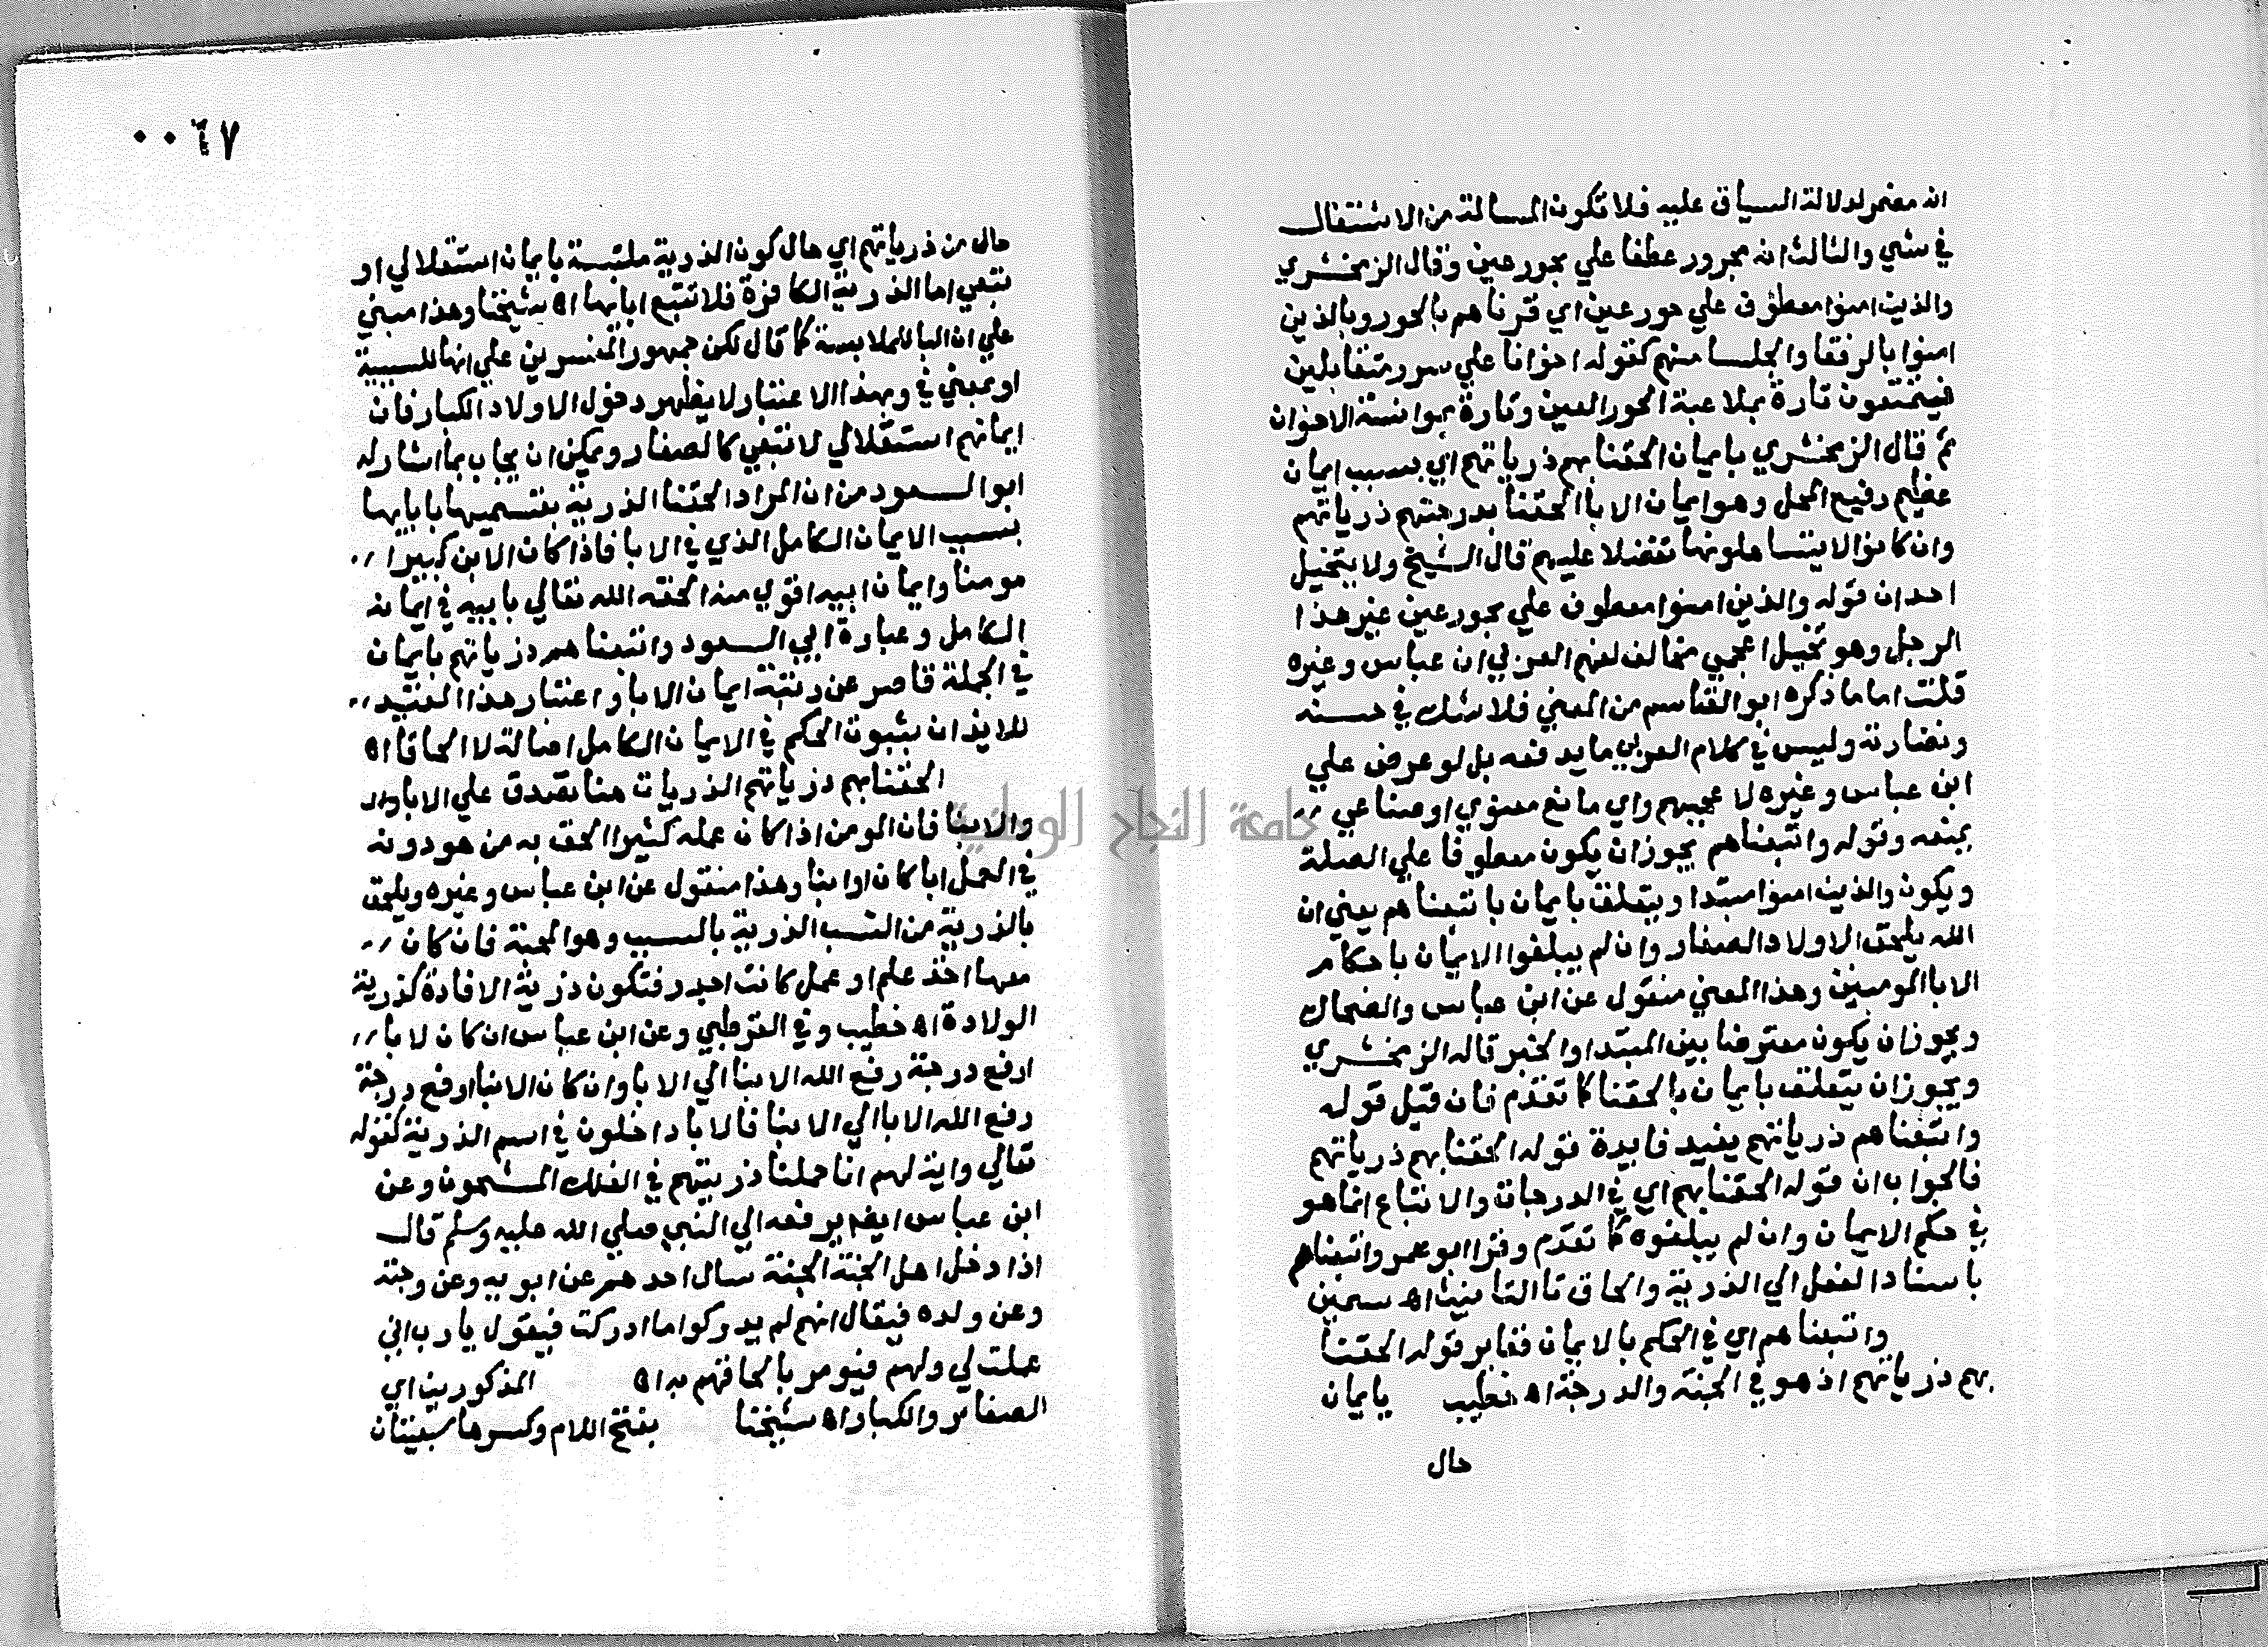 انه مضمر لدلالة السياق عليه فلا تكون المسالة من الاشتغال
في شي والثالث انه مجرور عطفا علي بحور عين وقال الزمخشري
والذين امنوا معطوف علي حور عين اي قرناهم بالحور وبالذين
امنوا بالرفقا والجلسا منهم كقوله اخوانا علي سرر متقابلين
فيتمتعون تارة بملاعبة الحور العين وتارة بموانسة الاخوان
ثم قال الزمخشري بايمان الحقنا بهم ذرياتهم اي بسبب ايمان
عظيم رفيع المحل وهو ايمان الابا الحقنا بدرجتهم ذرياتهم
وان كانوا لا يتساهلونها تفضلا عليهم قال الشيخ ولا يتخيل
احد ان قوله والذين امنوا معطوف علي بحور عين غير هذا
الرجل وهو تخيل اعجمي مخالف لفهم العربي ابن عباس وغيره
قلت اما ما ذكره ابو القاسم من المعني فلا شك في حسنه
ونضارته وليس في كلام العربي ما يدفعه بل لو عرض علي
ابن عباس وغيره لاعجبهم واي مانع معنوي او صناعي
يمنعه وقوله واتبعناهم يجوز ان يكون معطوفا علي الصلة
ويكون والذين امنوا مبتدا ويتعلق بايمان باتبعناهم يعني ان
الله يلحق الاولاد الصغار وان لم يبلغوا الايمان باحكام
الابا المومنين وهذا المعني منقول عن ابن عباس والضحاك
ويجوز ان يكون معترضا بين المبتدا والخبر قاله الزمخشري
ويجوز ان يتعلق بايمان بالحقنا كما تقدم فان قيل قوله
واتبعناهم ذرياتهم يفيد فايدة قوله الحقنا بهم ذرياتهم
فالجواب ان قوله الحقنا بهم اي في الدرجات والاتباع انما هو
في حكم الايمان وان لم يبلغوه كما تقدم وقرا ابو عمر واتبعناهم
باسناد الفعل الي الذرية والحاق تا التانيث اه سمين
واتبعناهم اي في الحكم بالايمان فغاير قوله الحقنا
بهم ذرياتهم اذ هو في الجنة والدرجة اه خطيب بايمان
حال
٠٠٦٧
حال من ذرياتهم اي حال كون الذرية ملتبسة بايمان استقلالي او
تبعي اما الذرية الكافرة فلا تتبع ابايها اه شيخنا وهذا مبني
علي ان البا للملابسة كما قال لكن جمهور المفسرين علي انها للسببية
او بمعني في وبهذا الاعتبار لا يظهر دخول الاولاد الكبار فان
ايمانهم استقلالي لا تبعي كالصغار ويمكن ان يجاب بما اشار له
ابو السعود من ان المراد الحقنا الذرية بقسميها بابايها
بسبب الايمان الكامل الذي في الابا فاذا كان الابن كبيرا
مومنا وايمان ابيه اقوي منه الحقه الله تعالي بابيه في ايمانه
الكامل وعبارة ابي السعود واتبعناهم ذرياتهم بايمان
في الجملة قاصر عن رتبة ايمان الابا واعتبار هذا القيد
للايذان بثبوت الحكم في الايمان الكامل اصالة لا الحاقا اه
الحقنا بهم ذرياتهم الذريات هنا تصدق علي الابا وال
والابنا فان المومن اذا كان عمله كثيرا الحق به من هو دونه
في العمل ابا كان او ابنا وهذا منقول عن ابن عباس وغيره ويلحق
بالذرية من النسب الذرية بالسبب وهو المحبة فان كان
معها اخذ علم او عمل كانت اجدر فتكون ذرية الافادة كذرية
الولادة اه خطيب وفي القرطبي وعن ابن عباس ان كان لابا
ارفع درجة رفع الله الابنا الي الابا وان كان الابنا ارفع درجة
رفع الله الابا الي الابنا فالابا داخلون في اسم الذرية كقوله
تعالي واية لهم انا حملنا ذريتهم في الفلك المشحون وعن
ابن عباس ايضا يرفعه الي النبي صلي الله عليه وسلم قال
اذا دخل اهل الجنة الجنة سال احدهم عن ابويه وعن وجته
وعن ولده فيقال انهم لم يدركوا ما ادركت فيقول يا رب اني
عملت لي ولهم فيومر بالحاقهم به اه المذكورين اي
الصغار والكبار اه شيخنا بفتح اللام وكسرها سبعيتان
جامعة النجاح الوطنية